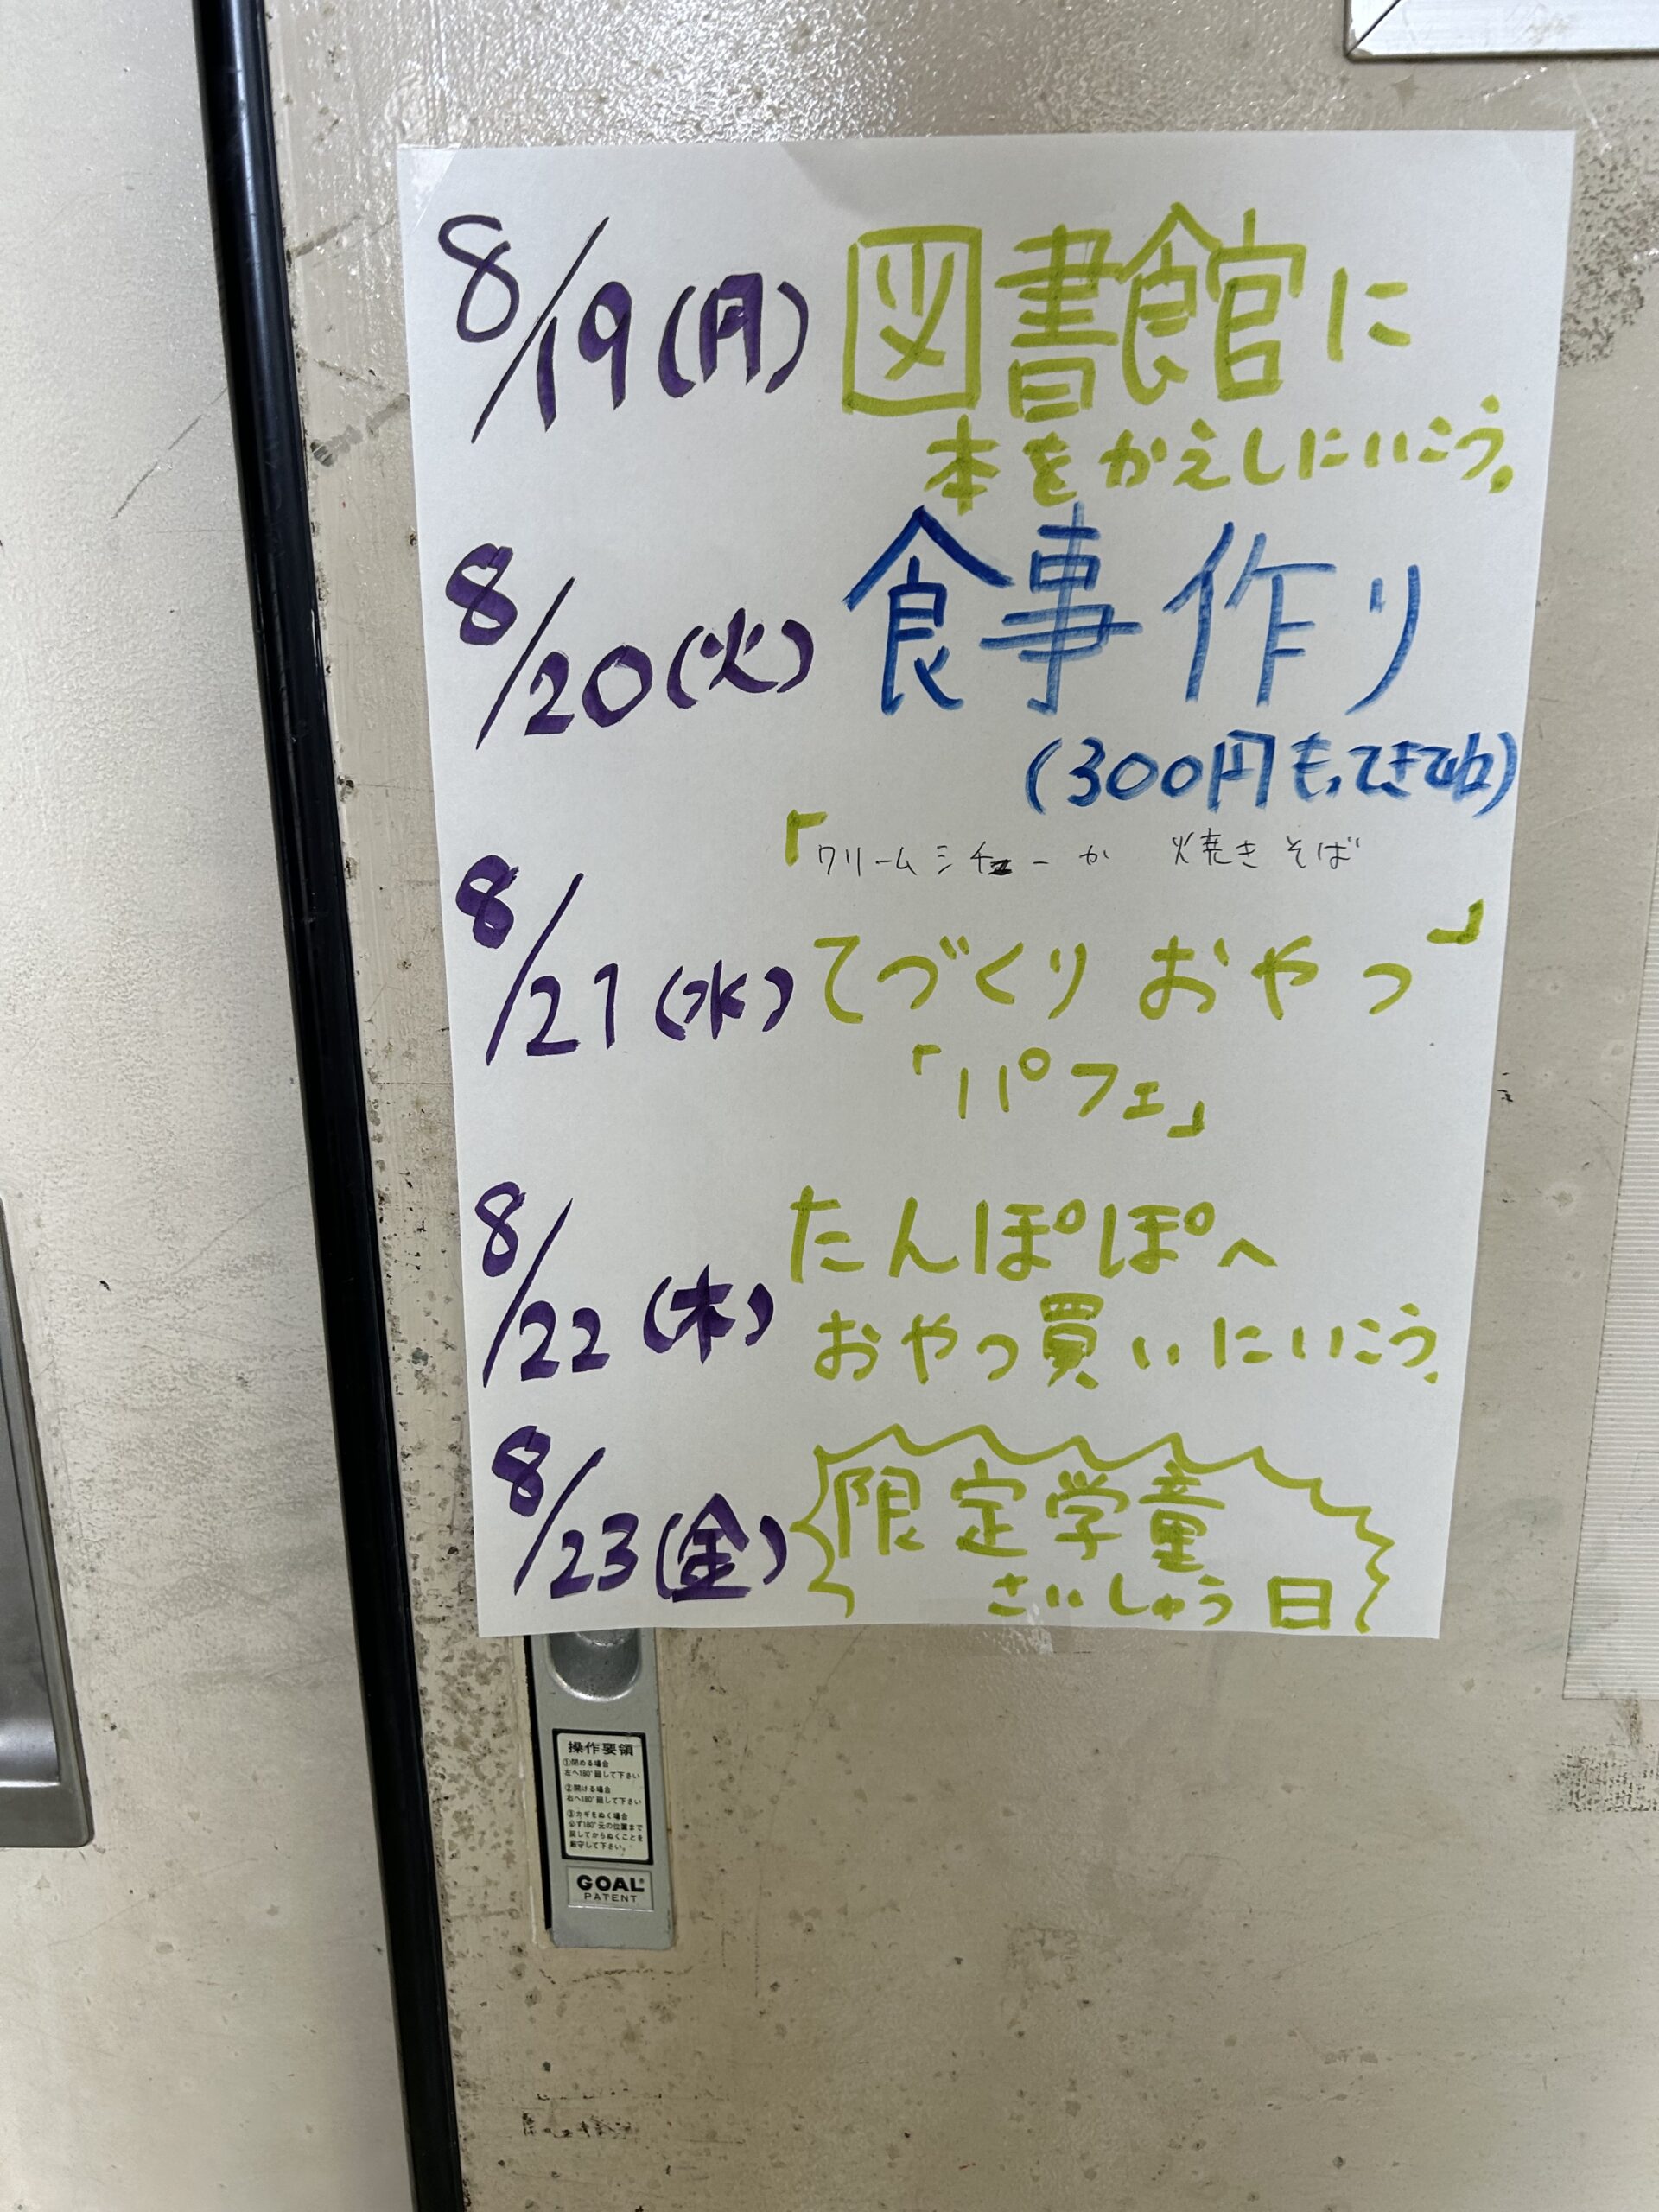 8/19(月) 図書館に
本をかえしにいこう。
8/20(火) 食事作り
(300円もってきてね)
「クリームシチューか 焼きそば
」
8/21(水) てづくりおやつ
「パフェ」
8/22(木) たんぽぽへ
おやつ買いにいこう。
8/23(金) 限定学童
さいしゅう日
操作要領
①閉める場合
左へ180°廻して下さい
②開ける場合
右へ180°廻して下さい
③カギをぬく場合
必ず180°元の位置まで
戻してからぬくことを
厳守して下さい。
GOAL
PATENT